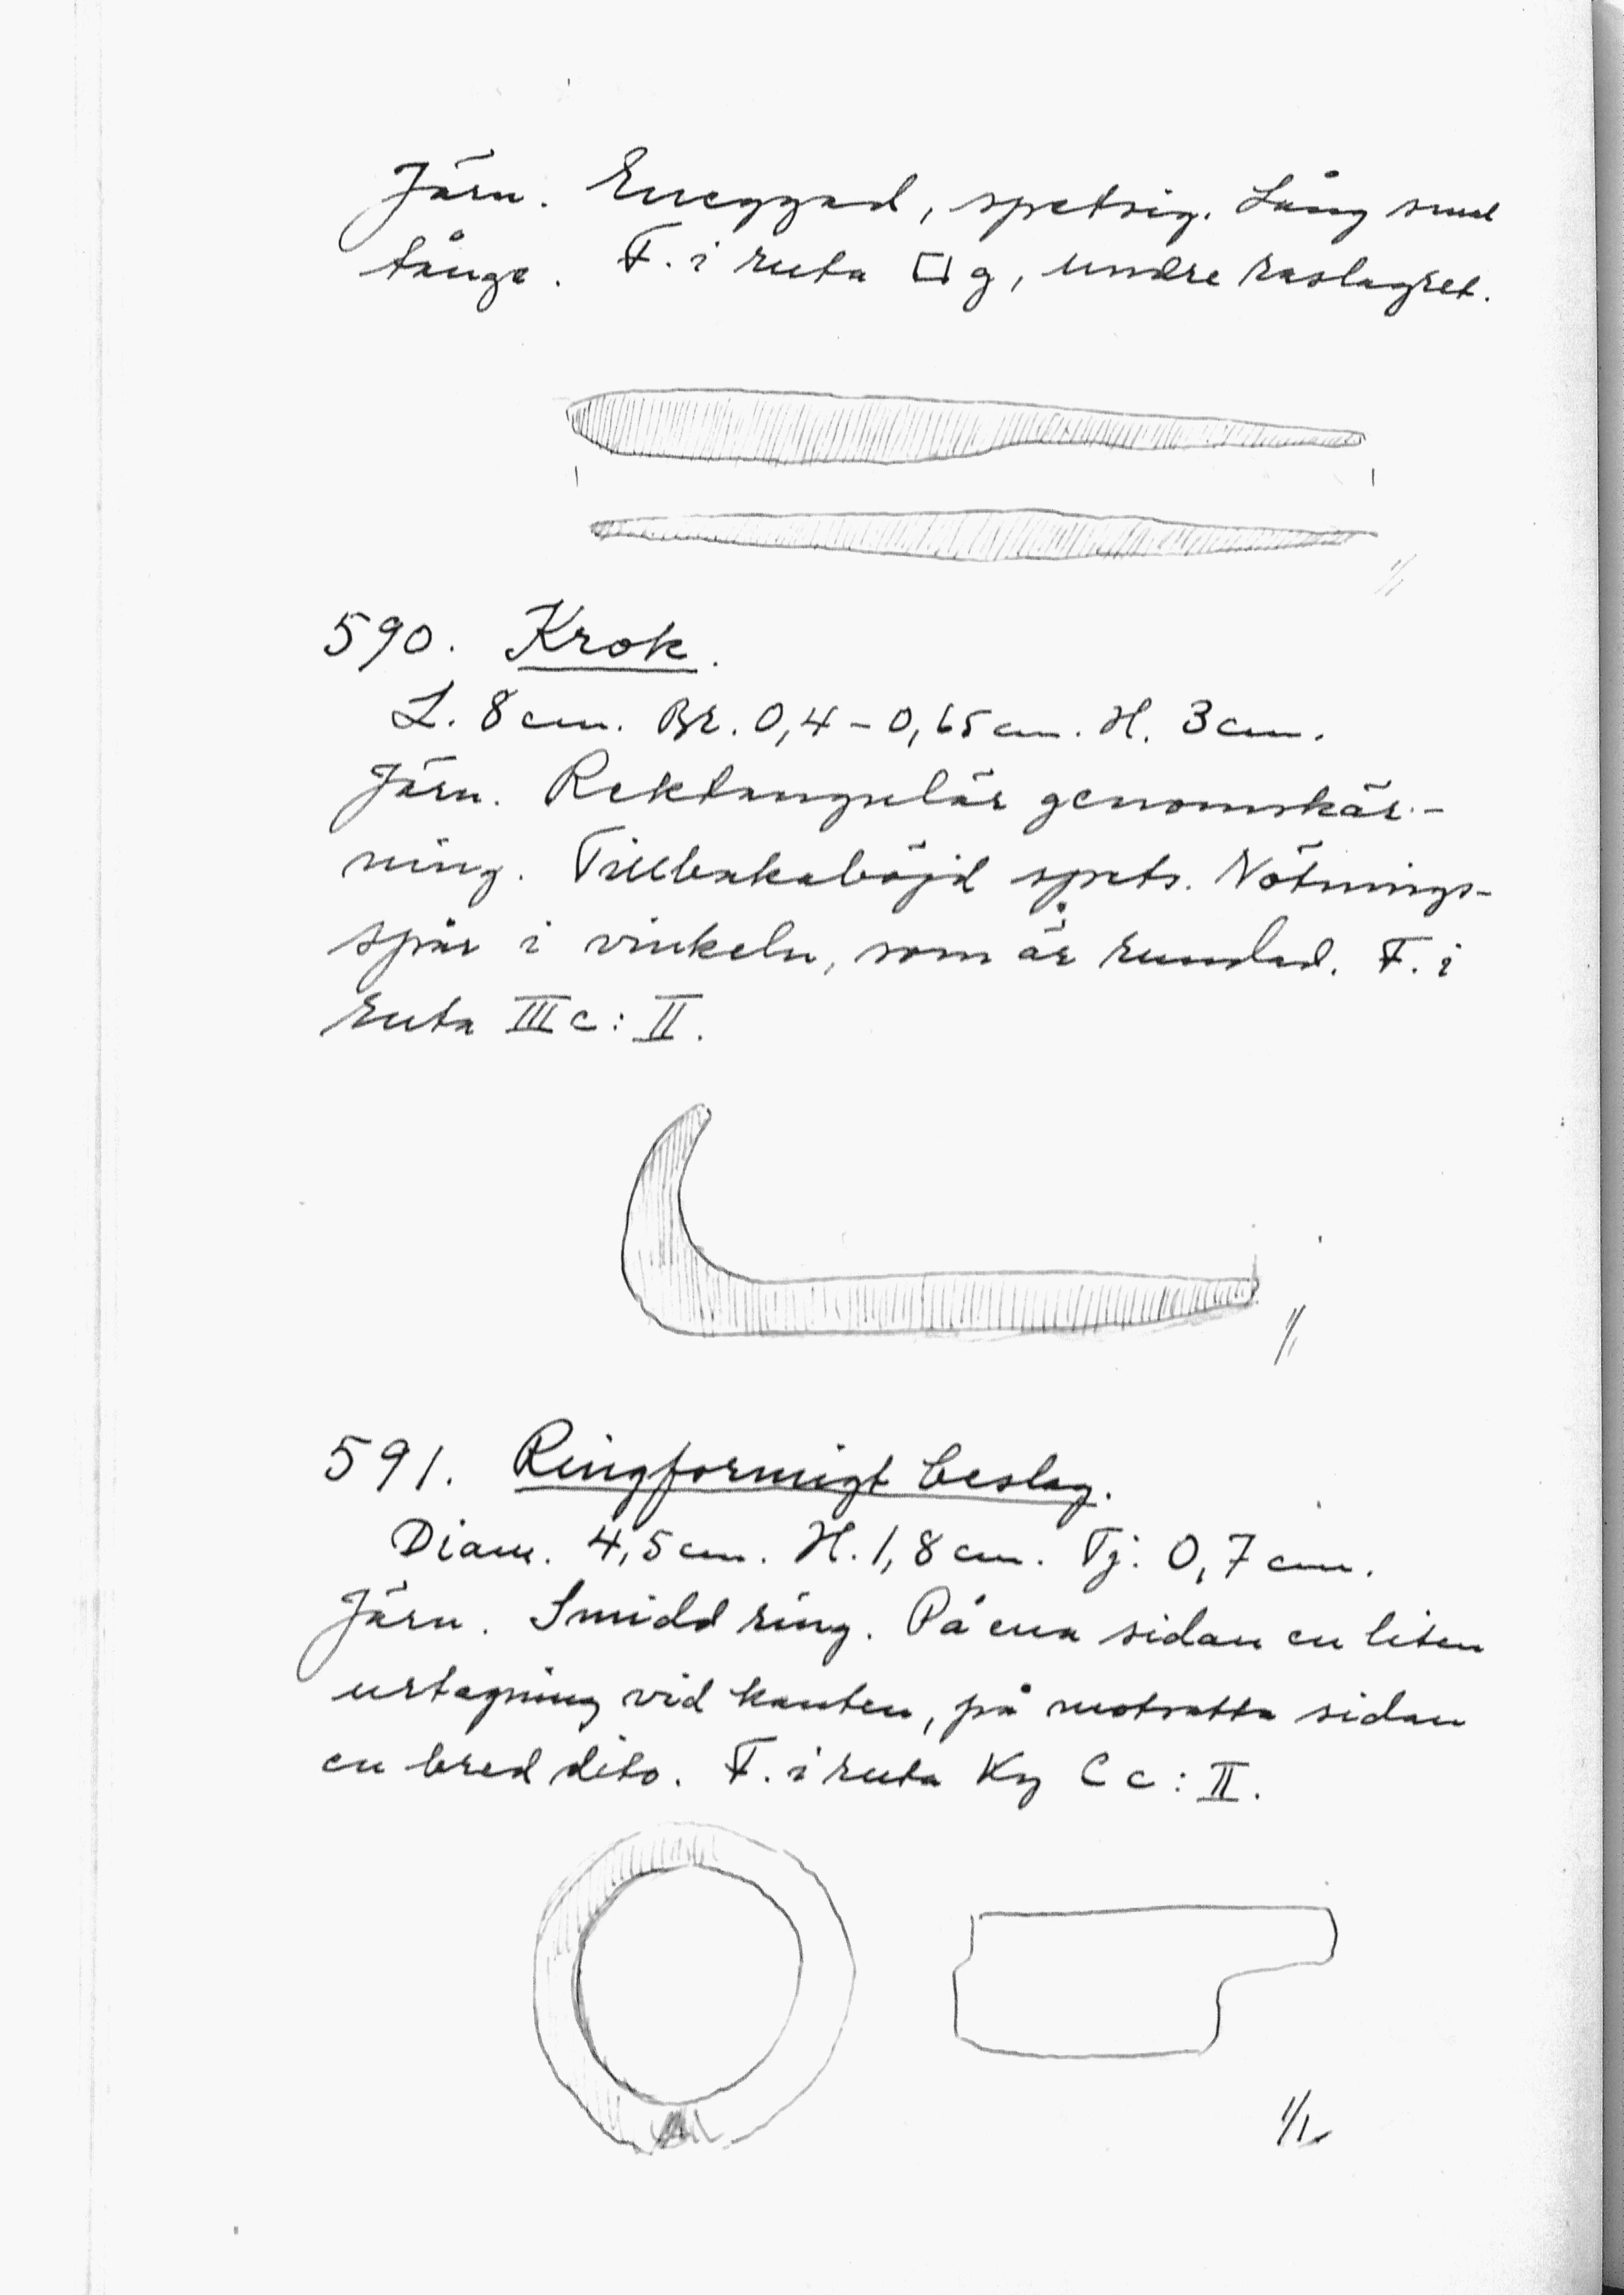 Järn. Eneggad, spetsig. Lång smal
tånge. F. i ruta □ g, undre raslagret.
1/1
590. Krok.
L. 8 cm. Br. 0,4 – 0,65 cm. H. 3 cm.
Järn. Rektangulär genomskär-
ning. Tillbakaböjd spets. Nötnings-
spår i vinkeln, som är rundad. F. i
ruta III c : II.
1/1
591. Ringformigt beslag.
Diam. 4,5 cm. H. 1,8 cm. Tj. 0,7 cm.
Järn. Smidd ring. På ena sidan en liten
urtagning vid kanten, på motsatta sidan
en bred dito. F. i ruta Ky C c : II.
1/1